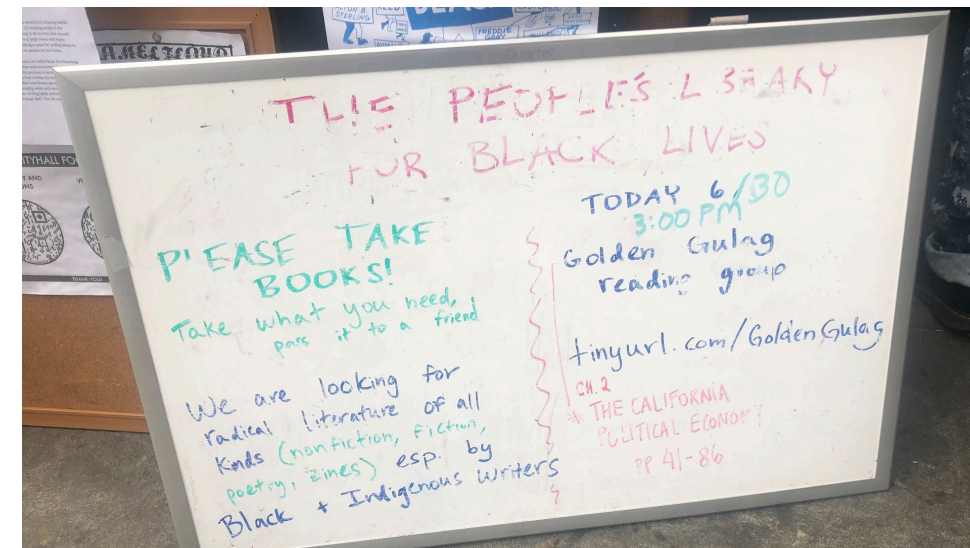 ALTON B.
STERLING
FREDDIE
GRAY
CITYHALL FO
THANK YOU!
THE PEOPLE'S LIBRARY
FOR BLACK LIVES
PLEASE TAKE
BOOKS!
Take what you need,
pass it to a friend!
We are looking for
radical literature of all
kinds (nonfiction, fiction,
poetry, zines) esp. by
Black + Indigenous Writers
TODAY 6/30
3:00 PM
Golden Gulag
reading group
tinyurl.com/GoldenGulag
CH. 2
* THE CALIFORNIA
POLITICAL ECONOMY
PP 41-86